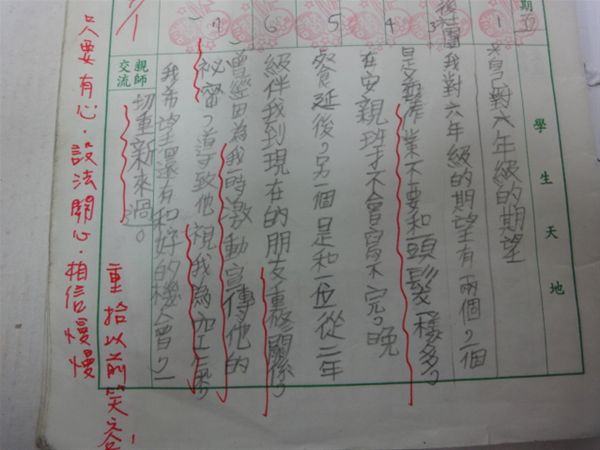 期五
1
3
4
5
6
7
學生天地
我自己對六年級的期望
我對六年級的期望有兩個，一個
是希望作業不要和頭髮一樣多，
在安親班才不會寫不完，晚
餐延後，另一個是和一位從二年
級伴我到現在的朋友重整關係，
曾經因為我一時激動宣傳他的
秘密，導致他視我為加工廠，
我希望還有和好的機會，一
切重新來過。
親師交流
只要有心，設法關心，相信慢慢
重拾以前笑容！